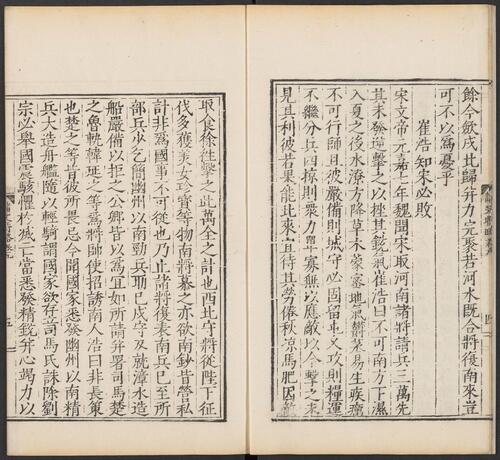 餘今歛戍北歸并力完聚若河水既合將復南來豈
可不以為憂乎
崔浩知宋必敗
宋文帝元嘉七年魏聞宋取河南諸將請兵三萬先
其未發逆擊之以挫其銳氣崔浩曰不可南方下濕
入夏之後水潦方降草木蒙密地氣鬱蒸易生疾癘
不可行師且彼嚴備則城守必固留屯久攻則糧運
不繼分兵四掠則衆力單寡無以應敵以今擊之未
見其利彼若果能北來宜待其勞倦秋凉馬肥因敵
取食徐往擊之此萬全之計也西北守將從陛下征
伐多獲美女珍寶等物南將慕之亦欲南鈔皆營私
計非為國事不可從也乃止諸將復表南兵已至所
部兵少乞簡幽州以南勁兵助己戍守及就漳水造
船嚴備以拒之公卿皆以為宜如所請并署司馬楚
之魯軌韓延之等為將帥使招誘南人浩曰非長策
也楚之等皆彼所畏忌今聞國家悉發幽州以南精
兵大造舟艦隨以輕騎謂國家欲存立司馬氏誅除劉
宗必舉國震駭懼於滅亡當悉發精銳并心竭力以